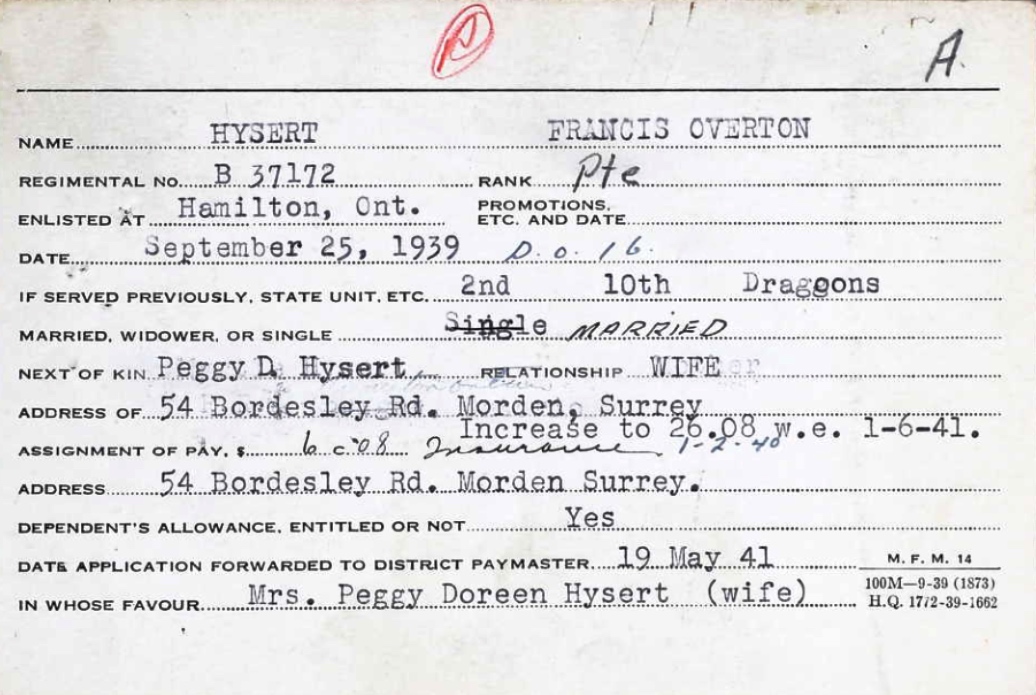 A.
NAME HYSERT FRANCIS OVERTON
REGIMENTAL NO. B 37172 RANK Pte
ENLISTED AT Hamilton, Ont. PROMOTIONS, ETC. AND DATE
DATE September 25, 1939 D.O. 16.
IF SERVED PREVIOUSLY, STATE UNIT, ETC. 2nd 10th Dragoons
MARRIED, WIDOWER, OR SINGLE Single MARRIED
NEXT OF KIN Peggy D. Hysert RELATIONSHIP WIFE
ADDRESS OF 54 Bordesley Rd. Morden, Surrey
Increase to 26.08 w.e. 1-6-41.
ASSIGNMENT OF PAY, $ 6 c. 08 Insurance 1-2-40
ADDRESS 54 Bordesley Rd. Morden Surrey.
DEPENDENT'S ALLOWANCE, ENTITLED OR NOT Yes
DATE APPLICATION FORWARDED TO DISTRICT PAYMASTER 19 May 41
IN WHOSE FAVOUR Mrs. Peggy Doreen Hysert (wife)
M. F. M. 14
100M—9-39 (1873)
H.Q. 1772-39-1662